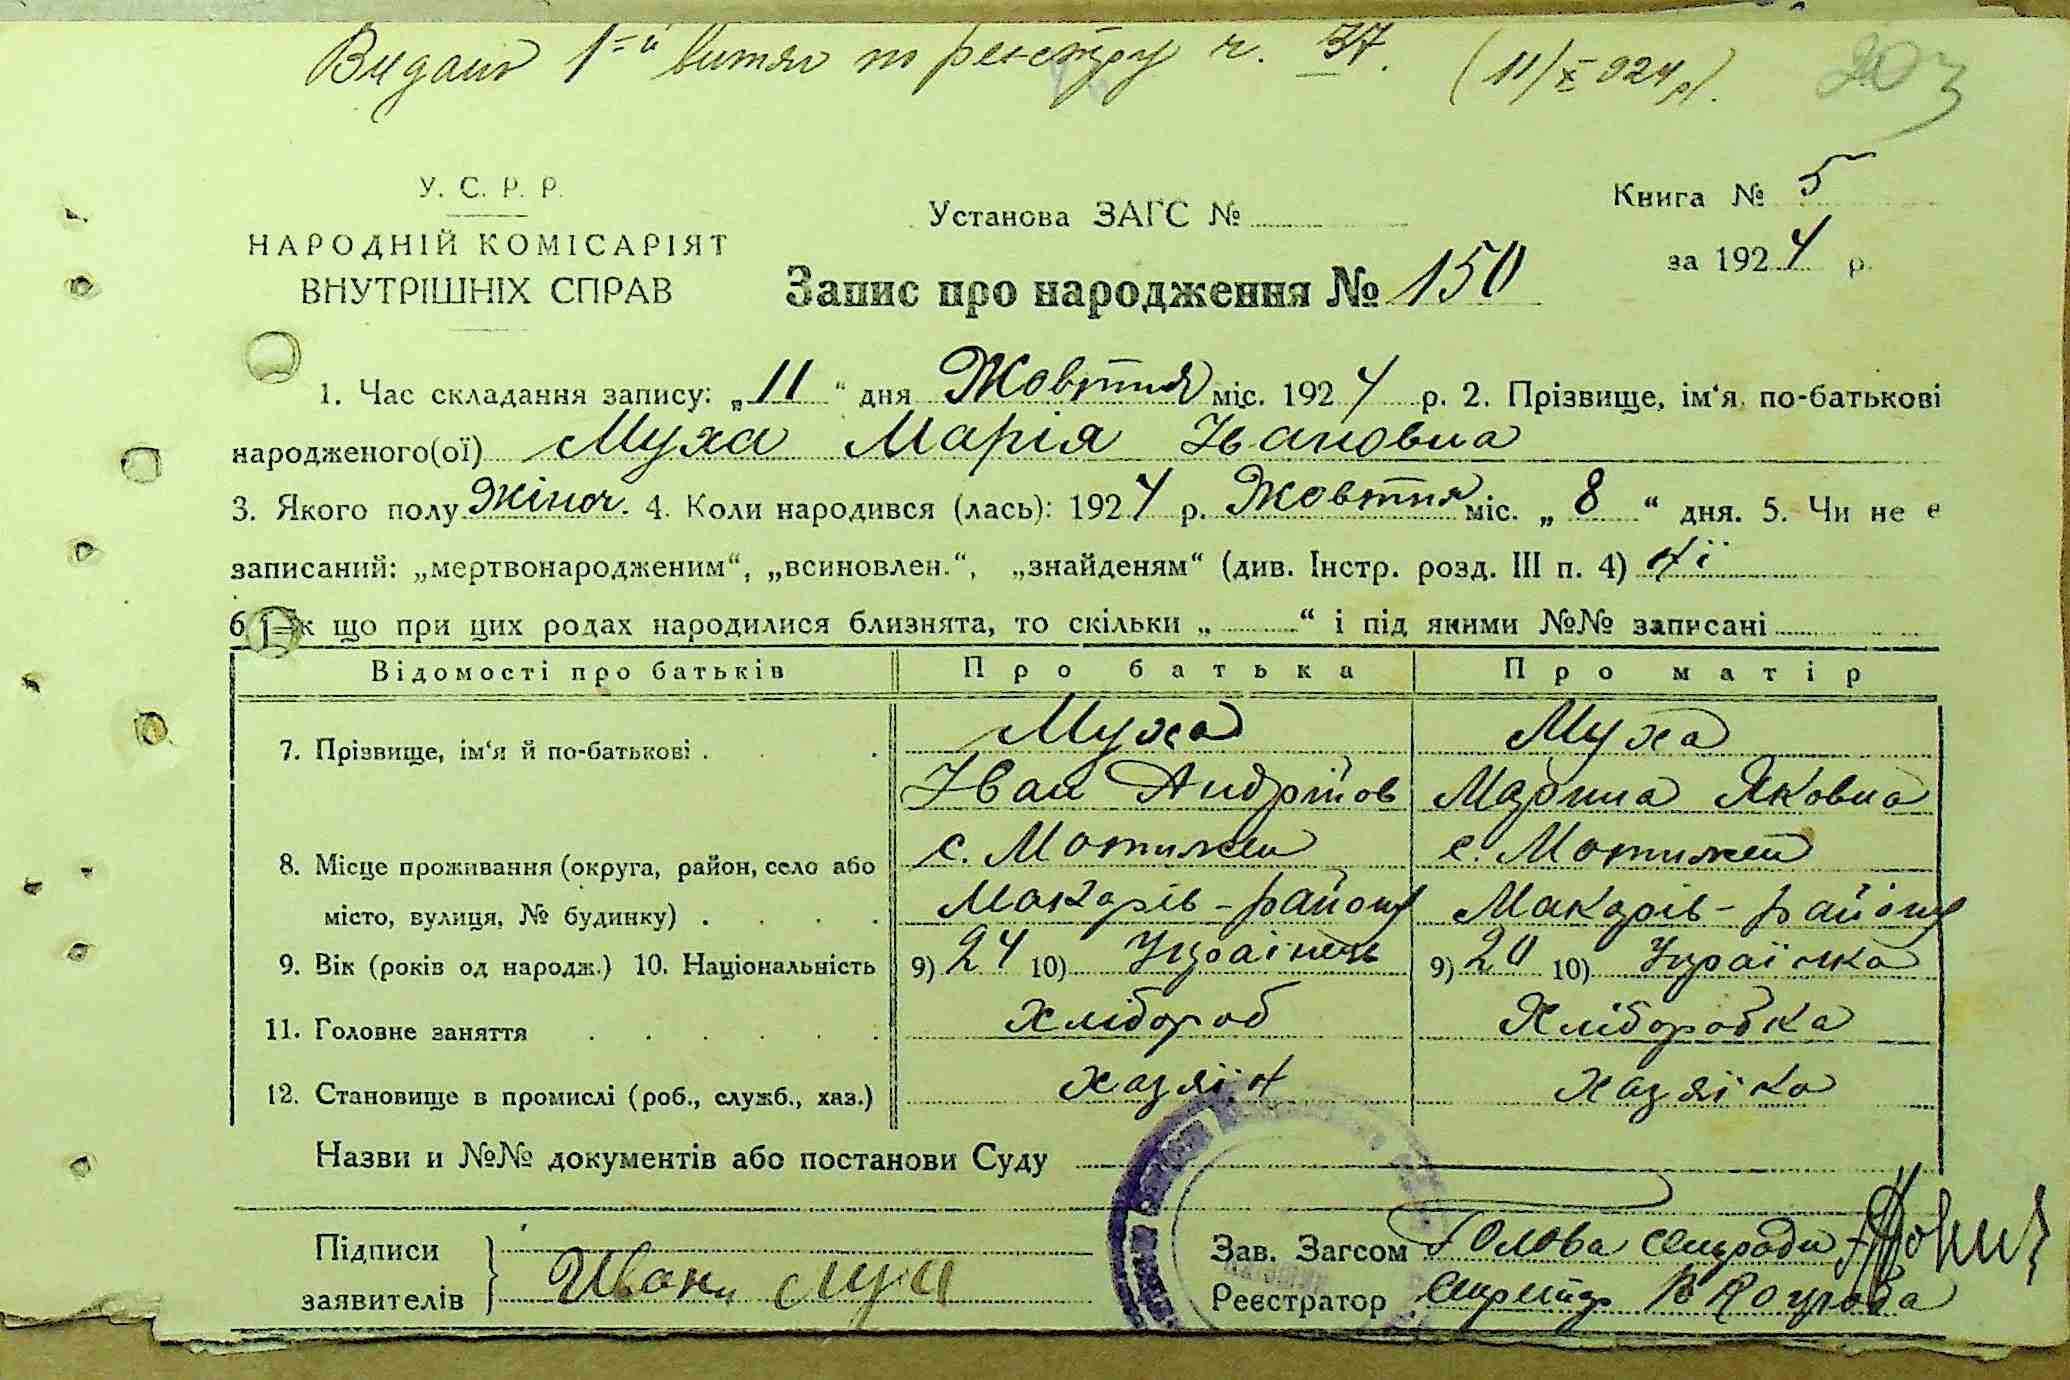 Видано 1=й витяг по реєстру ч. 37. (11/X 924 р).
203
У. С. Р. Р.
НАРОДНІЙ КОМІСАРІЯТ
ВНУТРІШНІХ СПРАВ
Установа ЗАГС №
Книга № 5
за 1924 р.
Запис про народження № 150
1. Час складання запису: „11“ дня Жовтня міс. 1924 р. 2. Прізвище, ім‘я по-батькові
народженого(ої) Муха Марія Івановна
3. Якого полу Жіноч. 4. Коли народився (лась): 1924 р. Жовтня міс. „8“ дня. 5. Чи не є
записаний: „мертвонародженим“, „всиновлен.“, „знайденям“ (див. Інстр. розд. III п. 4) Ні
6 що при цих родах народилися близнята, то скільки „ “ і під якими №№ записані
Відомості про батьків Про батька Про матір
7. Прізвище, ім‘я й по-батькові . . Муха Муха
Іван Андріїов Марина Яковна
8. Місце проживання (округа, район, село або с. Мотижен с. Мотижен
місто, вулиця, № будинку) . . . . Макарів-району Макарів-району
9. Вік (років од народж.) 10. Національність 9) 24 10) Українець 9) 20 10) Українка
11. Головне заняття . . . . . . Хлібороб Хліборобка
12. Становище в промислі (роб., служб., хаз.) хазяїн хазяїка
Назви и №№ документів або постанови Суду
Підписи
заявителів Иван Мухи
Зав. Загсом Голова сільради
Реєстратор Секретар